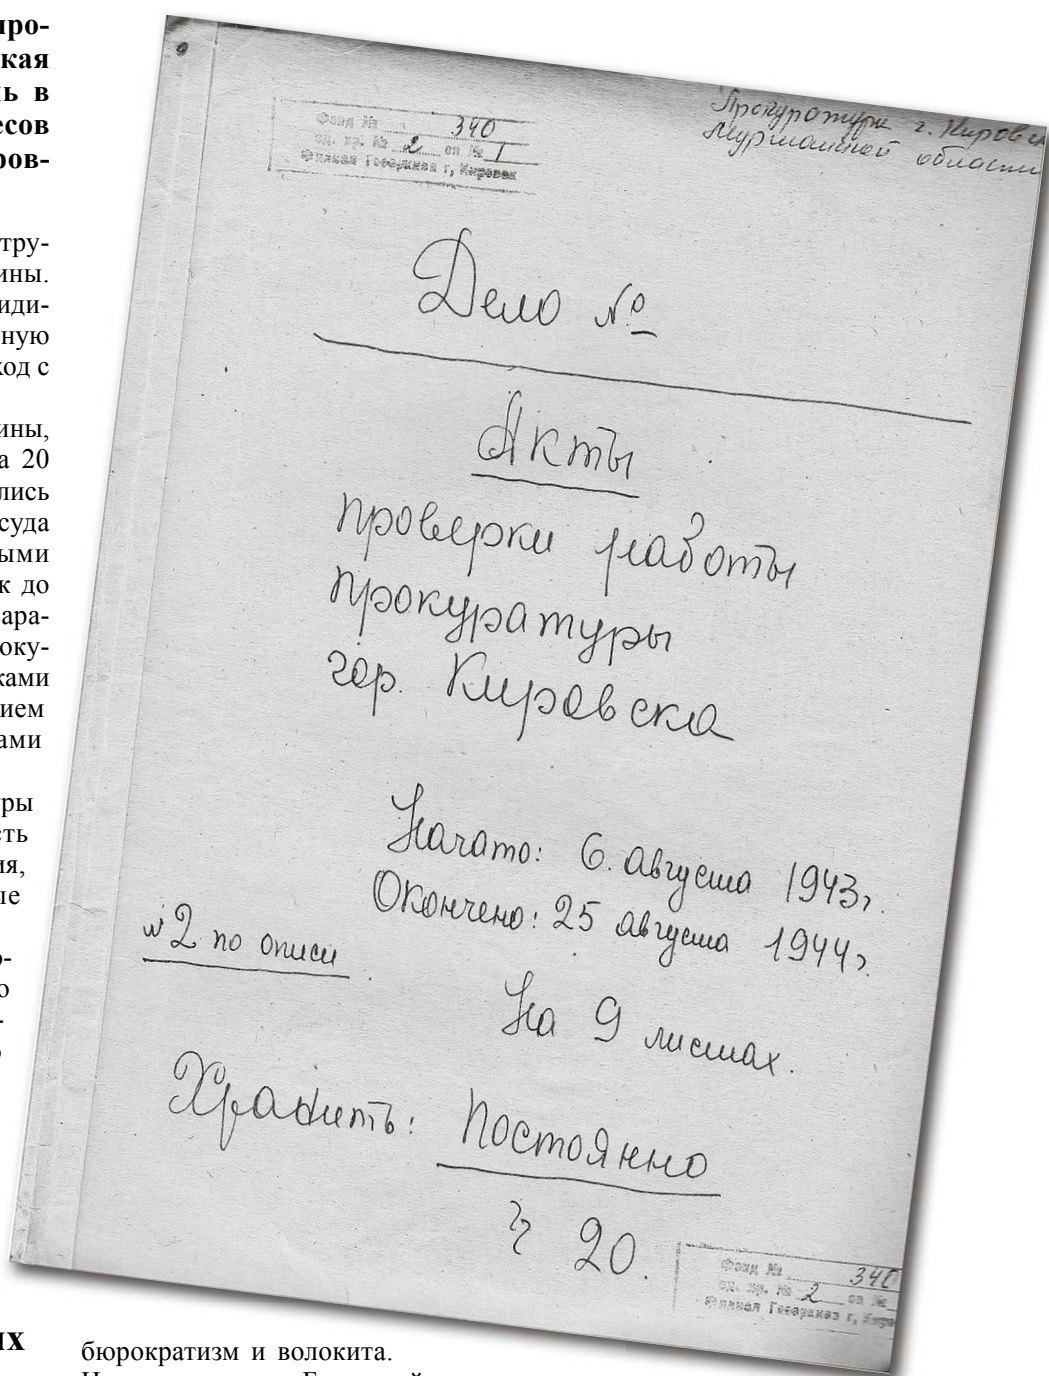 про-
кая
ь в
есов
ров-
тру-
ины.
види-
ную
ход с
ины,
а 20
лись
суда
ыми
к до
зара-
оку-
ками
нием
ами
ры
сть
ия,
ые
о-
о
Фонд № 340
ед. хр. № 2 оп № 1
Филиал Госархива г, Кировск
Прокуратура г. Кировск
Мурманской области
Дело №
Акты
проверки работы
прокуратуры
гор. Кировска
Начато: 6. августа 1943г.
Окончено: 25 августа 1944г.
№2 по описи
На 9 листах.
Хранить: Постоянно
20.
Фонд № 340
ед. хр. № 2 оп №
Филиал Госархива г, Киро
ых
бюрократизм и волокита.